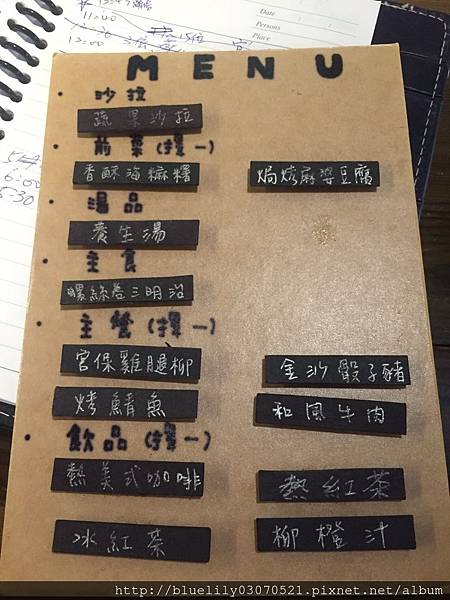 11:40
12:00
Date
Persons
Place
6:00
MENU
沙拉
蔬果沙拉
前菜(擇一)
香酥海麻糬 焗烤麻婆豆腐
湯品
養生湯
主食
螺絲卷三明治
主餐(擇一)
宮保雞腿柳 金沙骰子豬
烤鯖魚 和風牛肉
飲品(擇一)
熱美式咖啡 熱紅茶
冰紅茶 柳橙汁
http://bluelily03070521.pixnet.net/album